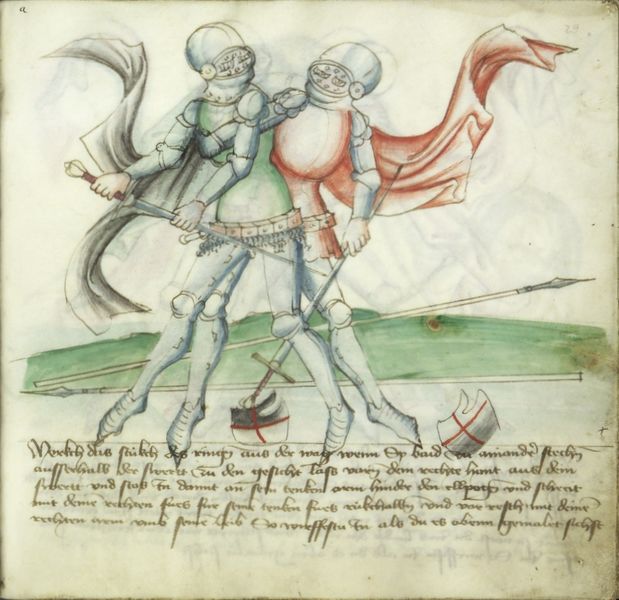 a
29
Merckh das stuckh des ringen aus der wag wenn Sy baid zu ainander stechn
ausserhalb der swert zu den gesicht lass varn dein rechte hant aus dem
swert und stos In damit an sein tenken arem hinder den ellpogen und schreit
mit deinem rechten fues fur seine tenken fues rukchalbm und var resch mit deine
rechten arem umb seine leib So wirffstu In als du es obenn gemalet siehst